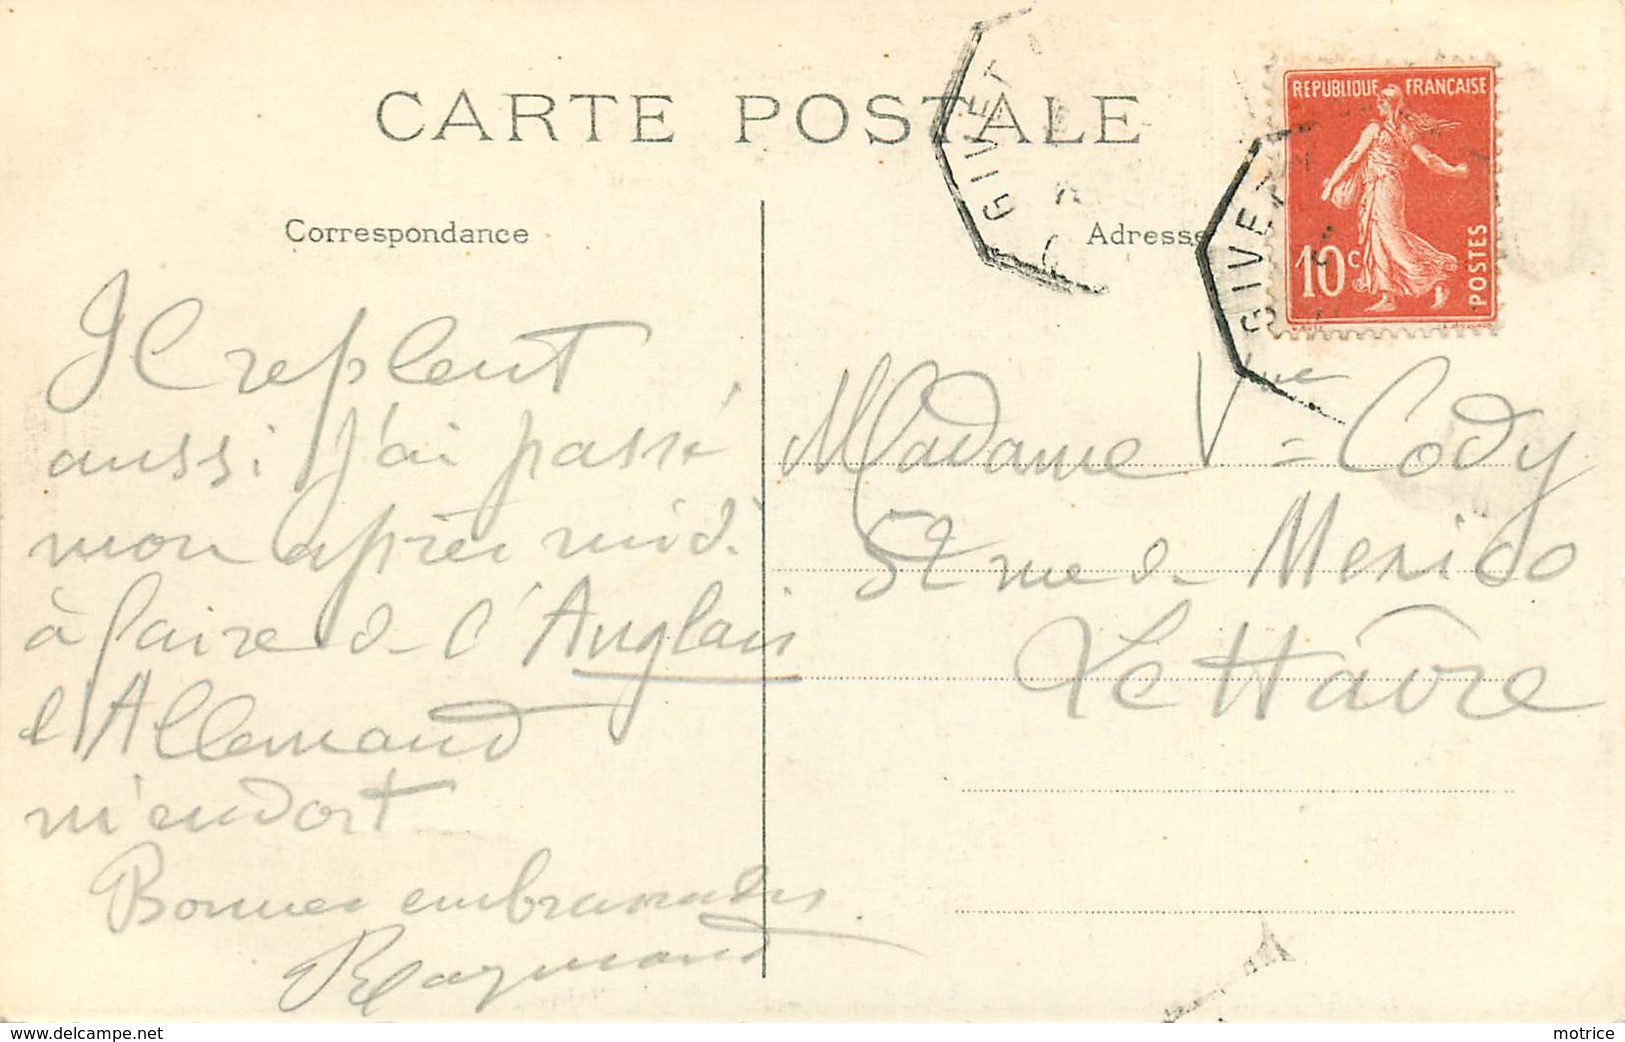 CARTE POSTALE
GIVET
GIVET
REPUBLIQUE FRANÇAISE
10c
POSTES
Correspondance
Adresse
Il repleut
aussi j'ai passé
mon après midi
à faire de l'Anglais
l'Allemand
m'endort
Bonnes embrassades
Raymond
Madame Vve Cody
52 rue de Mexico
Le Hâvre
motrice
delcampe.net